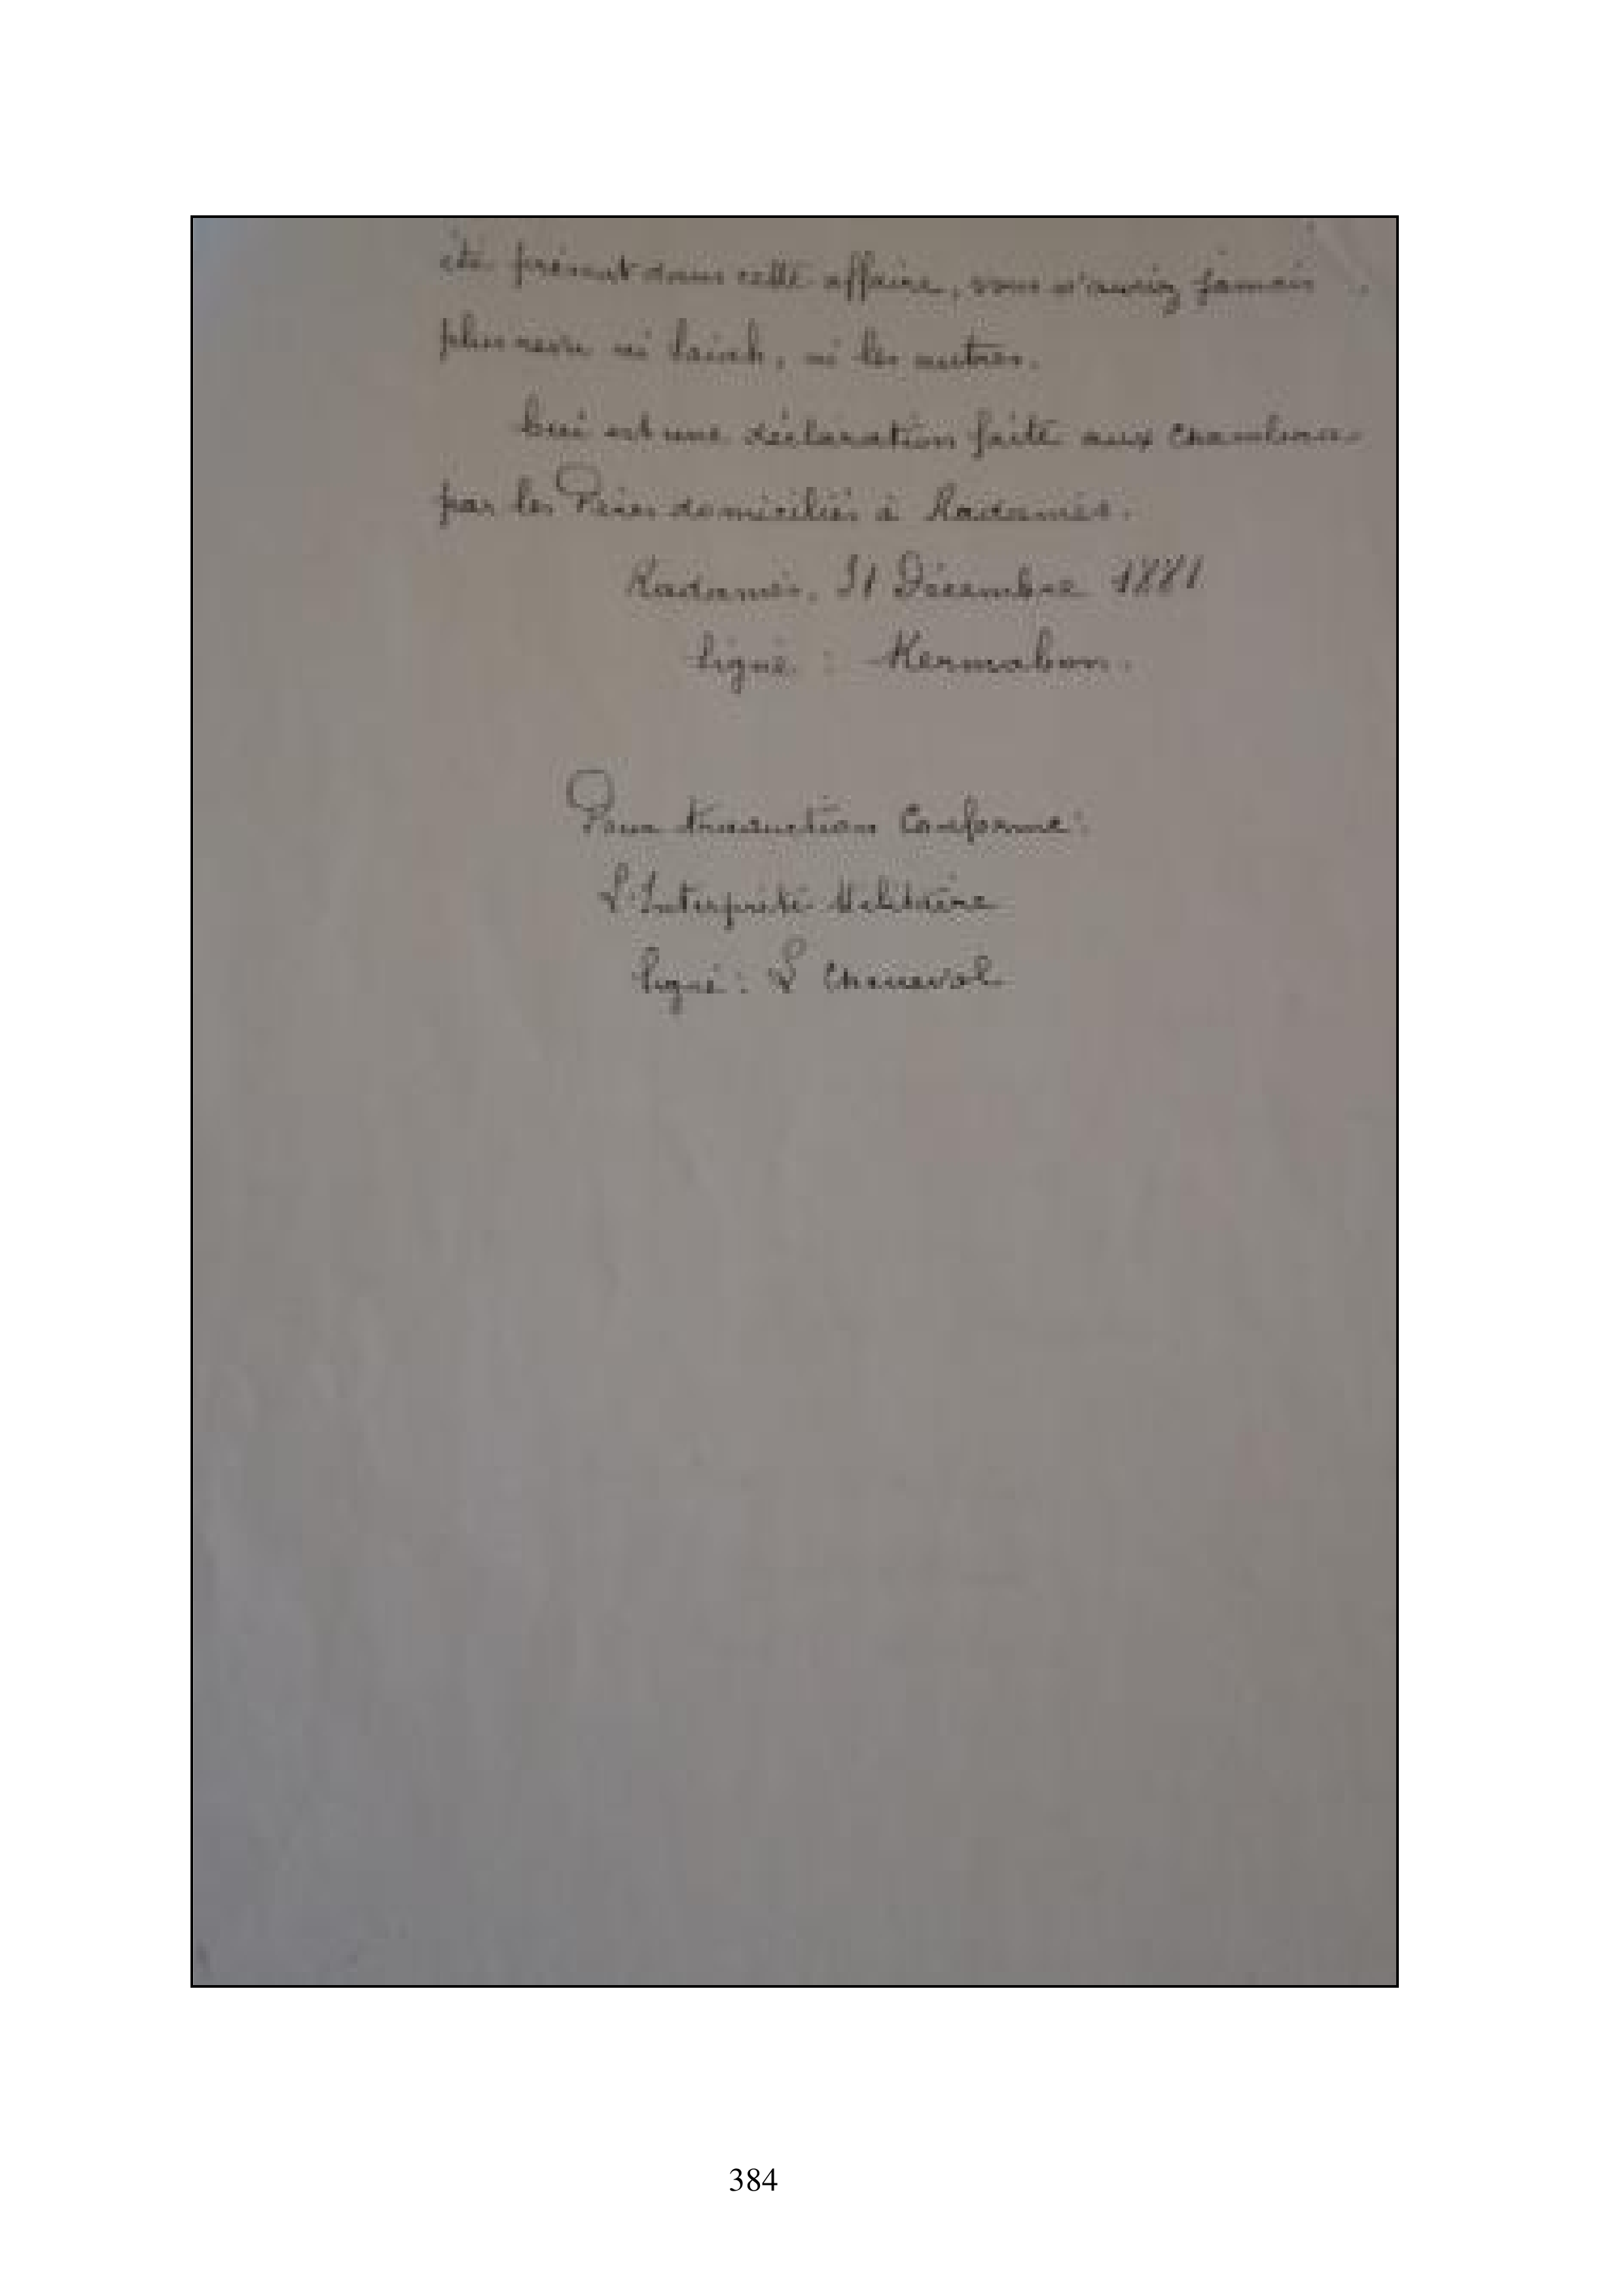 été présent dans cette affaire, vous n'auriez jamais
plus revu ni Saïah, ni les autres.
Ceci est une déclaration faite aux Chambaa
par les Pères domiciliés à Radamès.
Radamès, 31 Décembre 1881
Signé : Kermabon.
Pour traduction Conforme :
L'Interprète Militaire
Signé : L Chenevol
384